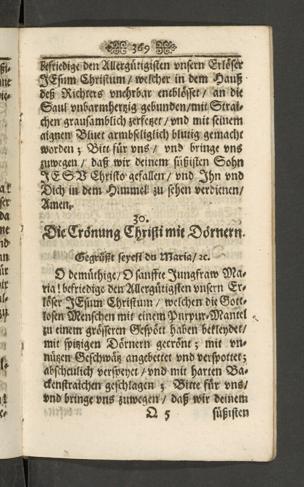 369
befriedige den Allergütigisten vnsern Erlöser
JEsum Christum / welcher in dem Hauß
deß Richters vnehrbar entblösset / an die
Saul vnbarmhertzig gebunden / mit Strai-
chen grausamblich zerfetzet / vnd mit seinem
aignen Bluet armbseliglich blutig gemacht
worden ; Bitt für vns / vnd bringe vns
zuwegen / daß wir deinem süßisten Sohn
JESV Christo gefallen / vnd Ihn vnd
Dich in dem Himmel zu sehen verdienen /
Amen.
30.
Die Crönung Christi mit Dörnern.
Gegrüßt seyest du Maria / ꝛc.
O demüthige / O sanffte Jungfraw Ma-
ria ! befriedige den Allergütigsten vnsern Er-
löser JEsum Christum / welchen die Gott-
losen Menschen mit einem Purpur-Mantel
zu einem grösseren Gespött haben bekleydet /
mit spitzigen Dörnern gecrönt ; mit vn-
nützen Geschwätz angebettet vnd verspottet ;
abscheulich verspeyet / vnd mit harten Ba-
ckenstraichen geschlagen ; Bitte für vns /
vnd bringe vns zuwegen / daß wir deinem
Q 5 süßisten